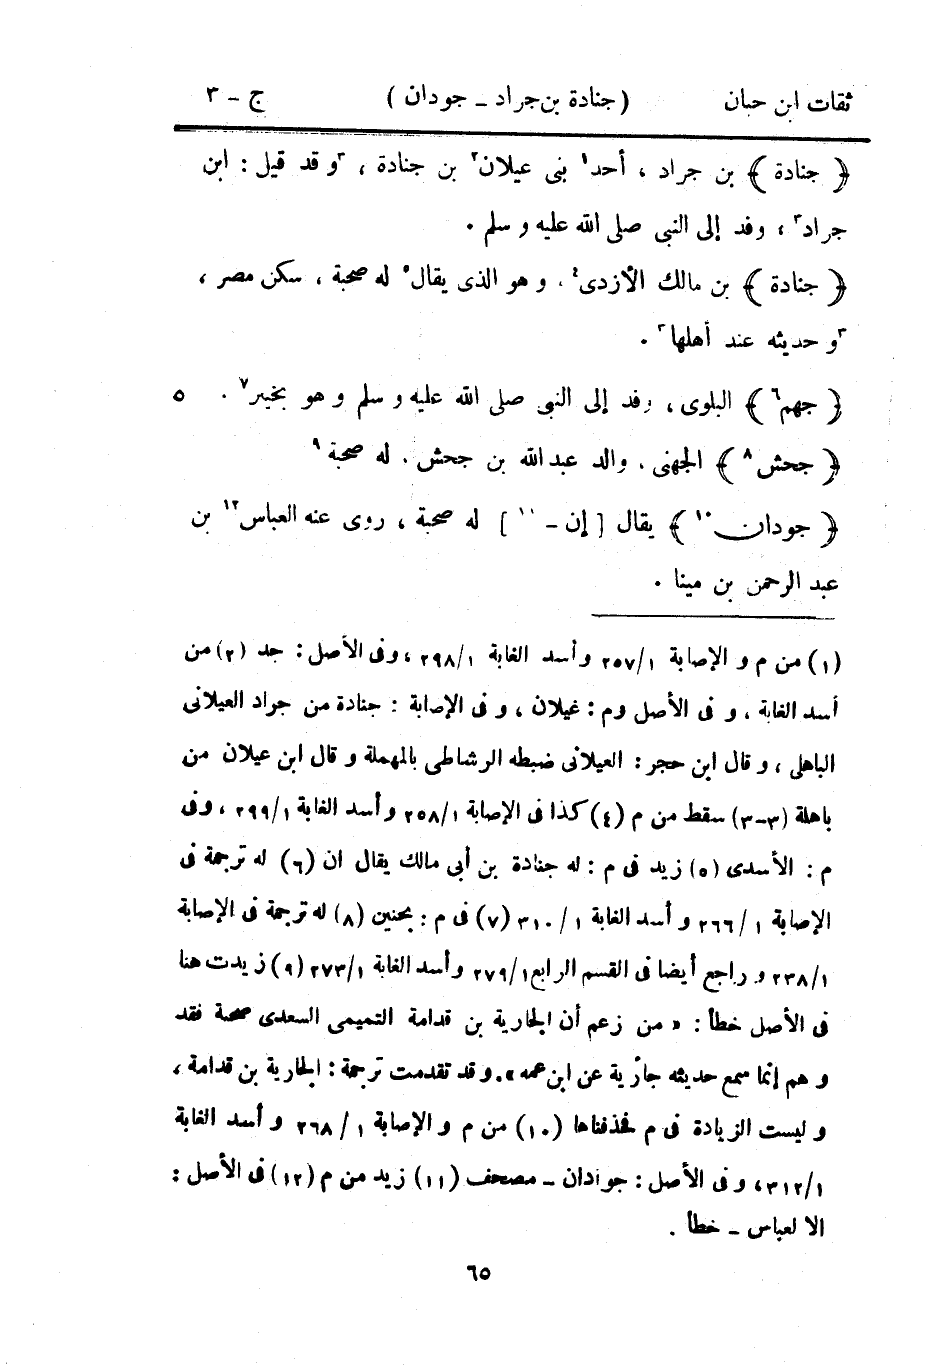 ثقات ابن حبان (جنادة بن جراد ـ جودان) ج ـ ٣
﴿ جنادة ﴾ بن جراد ، أحد١ بنى عيلان٢ بن جنادة ، ٣و قد قيل : ابن
جراد٣ ؛ وفد إلى النبى صلى الله عليه و سلم .
﴿ جنادة ﴾ بن مالك الأزدى٤ ، و هو الذى يقال٥ له صحبة ، سكن مصر ،
٣و حديثه عند أهلها٣ .
﴿ جهم٦ ﴾ البلوى ، وفد إلى النبى صلى الله عليه و سلم و هو بخيبر٧ . ٥
﴿ جحش٨ ﴾ الجهنى . والد عبد الله بن جحش . له صحبة٩
﴿ جودان١٠ ﴾ يقال [ إن - ١١ ] له صحبة ، روى عنه العباس١٢ بن
عبد الرحمن بن مينا .
(١) من م و الإصابة ١/٢٥٧ و أسد الغابة ١/٢٩٨ ، وفى الأصل : جد (٢) من
أسد الغابة ، و فى الأصل وم : غيلان ، و فى الإصابة : جنادة من جراد العيلانى
الباهلى ، و قال ابن حجر : العيلانى ضبطه الرشاطى بالمهملة و قال ابن عيلان من
باهلة (٣-٣) سقط من م (٤) كذا فى الإصابة ١/٢٥٨ و أسد الغابة ١/٢٩٩ ، وفى
م : الأسدى (٥) زيد فى م : له جنادة بن أبى مالك يقال ان (٦) له ترجمة فى
الإصابة ١ /٢٦٦ و أسد الغابة ١ /٣١٠ (٧) فى م : بحنين (٨) له ترجمة فى الإصابة
١/٢٣٨ و راجع أيضا فى القسم الرابع ١/٢٧٩ وأسد الغابة ١/٢٧٣ (٩) زيدت هنا
فى الأصل خطأ : « من زعم أن الجارية بن قدامة التميمى السعدى صحبة فقد
و هم إنما سمع حديثه جارية عن ابن عمه ». و قد تقدمت ترجمة : الجارية بن قدامة ،
و ليست الزيادة فى م فحذفناها (١٠) من م و الإصابة ١ /٢٦٨ و أسد الغابة
١/٣١٢ ، و فى الأصل : جوادان ـ مصحف (١١) زيد من م (١٢) فى الأصل :
الا لعباس ـ خطأ .
٦٥